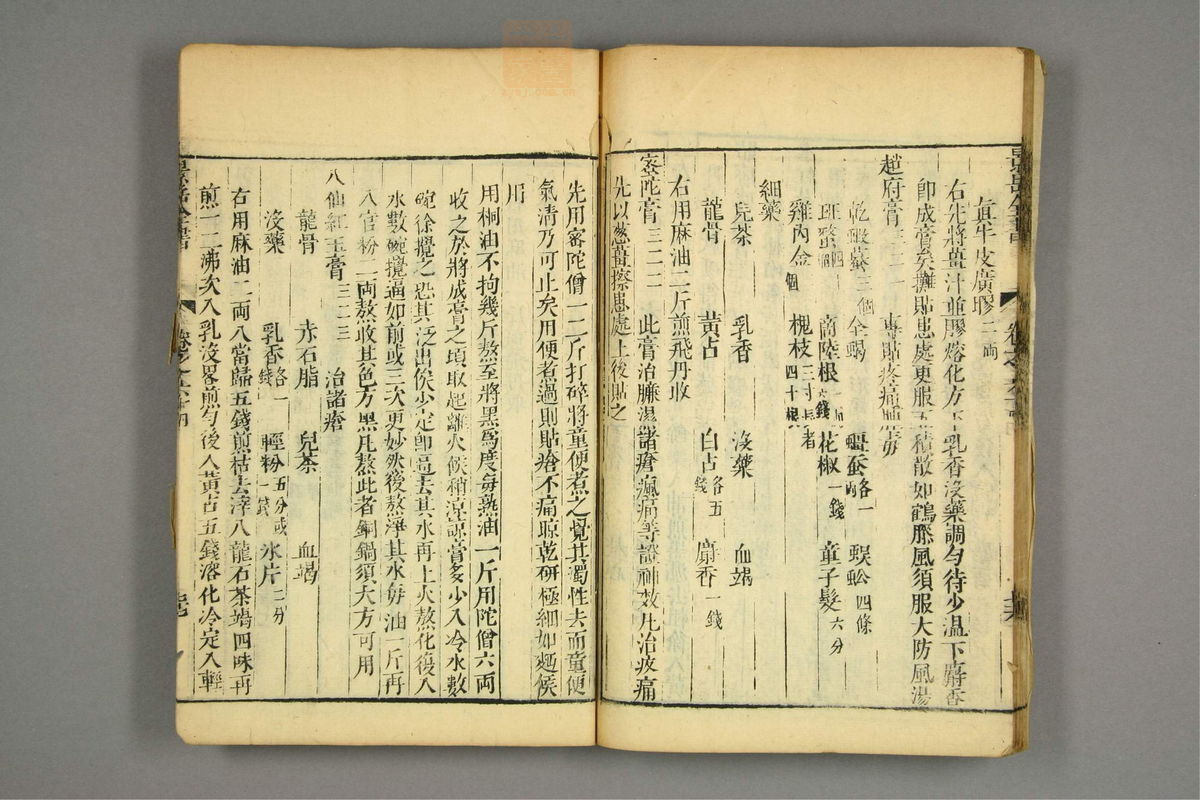 真牛皮廣膠二両
右先將薑汁並膠熔化方下乳香沒藥調勻待少温下麝香
即成膏矣攤貼患處更服五積散如鶴膝風須服大防風湯
趙府膏三二一 專貼疼痛腫毒
乾蝦蟇三個 全蝎 殭蚕各一両 蜈蚣四條
斑蝥四個 商陸根 花椒一錢 童子髮六分
雞內金個 槐枝三寸長者四十根
細藥
兒茶 乳香 沒藥 血竭
龍骨 黃占 白占各五錢 麝香一錢
右用麻油二斤煎飛丹收
密陀膏三二二 此膏治臁濕諸瘡瘋痛等證神效凡治疼痛
先以葱薑擦患處上後貼之
先用密陀僧一二斤打碎將童便煮之覺其濁性去而童便
氣清乃可止矣用便煮過則貼瘡不痛晾乾研極細如麪候
用
用桐油不拘幾斤熬至將黑為度每熟油一斤用陀僧六両
收之於將成膏之頃取起離火候稍涼諒膏多少入冷水數
碗徐攪之恐其泛出候少定即逼去其水再上火熬化復入
水數碗攪逼如前或三次更妙然後熬淨其水每油一斤再
入官粉一両熬收其色方黑凡熬此者銅鍋須大方可用
八仙紅玉膏三二三 治諸瘡
龍骨 赤石脂 兒茶 血竭
沒藥 乳香各一錢 輕粉五分或一錢 氷片二分
右用麻油二両入當歸五錢煎枯去滓入龍石茶竭四味再
煎一二沸次入乳沒畧煎勻後入黃占五錢溶化冷定入輕